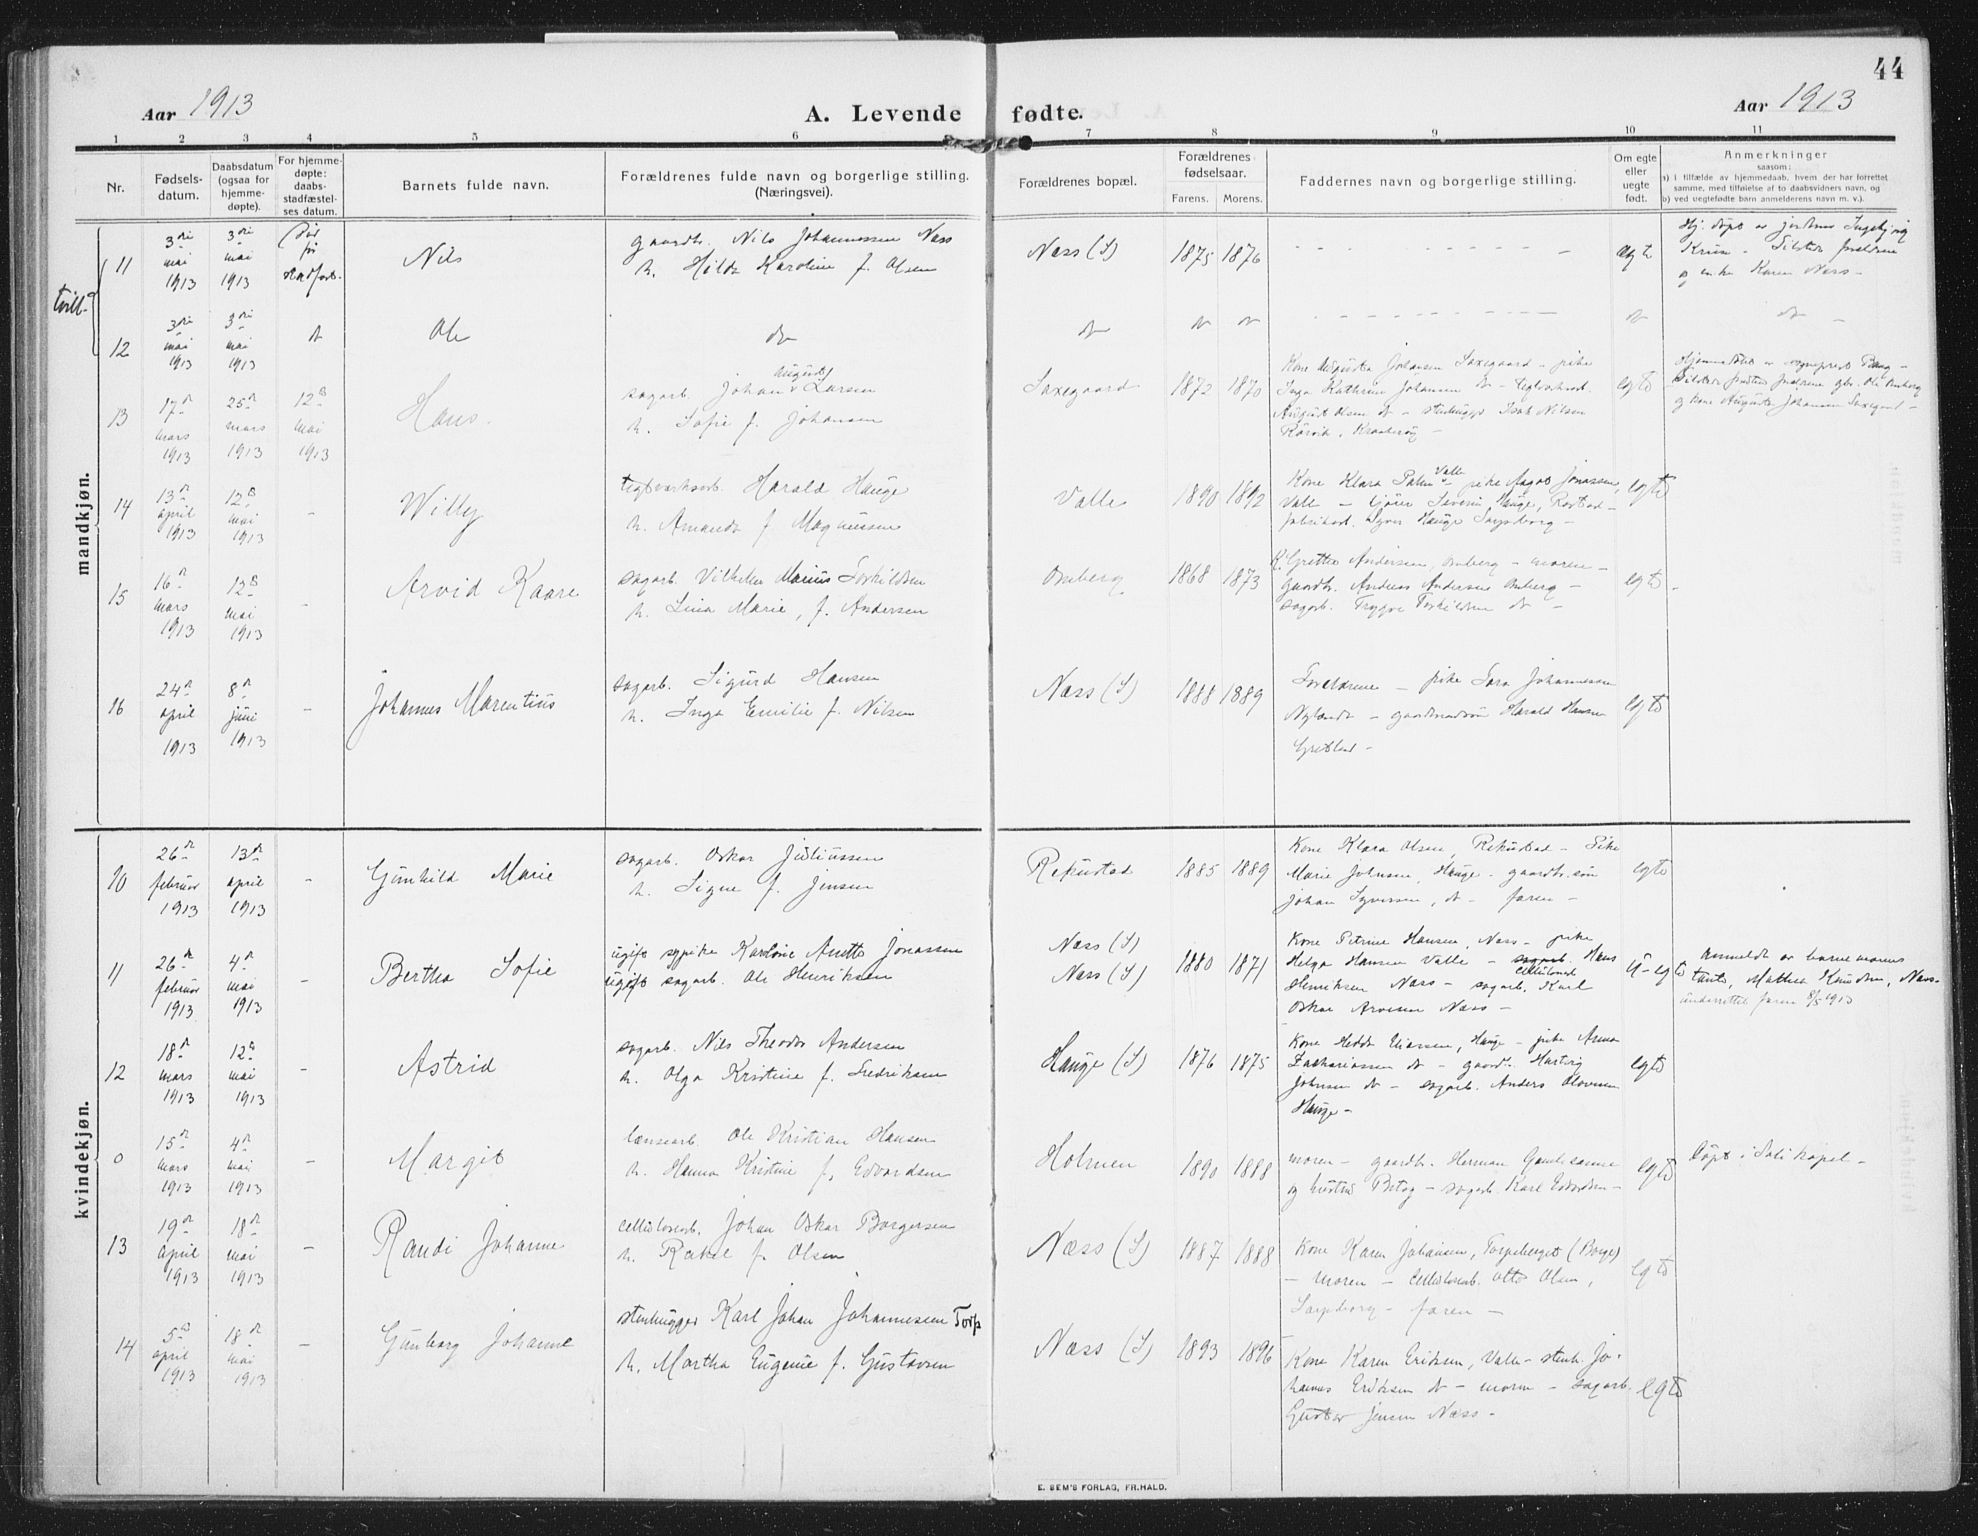 44
Aar 1913
A. Levende fødte.
Aar 1913
1 2 3 4 5 6 7 8 9 10 11
Nr.
Fødsels-
datum.
Daabsdatum
(ogsaa for
hjemme-
døpte).
For hjemme-
døpte:
daabs-
stadfæstel-
ses datum.
Barnets fulde navn.
Forældrenes fulde navn og borgerlige stilling.
(Næringsvei).
Forældrenes bopæl.
Forældrenes
fødselsaar.
Farens. Morens.
Faddernes navn og borgerlige stilling.
Om egte
eller
uegte
født.
Anmerkninger
saasom:
a) i tilfælde av hjemmedaab, hvem der har forrettet
samme, med tilføielse af to daabsvidners navn, og
b) ved uegtefødte barn anmelderens navn m. v.).
mandkjøn.
tvill.
11
3die mai 1913
3die mai 1913
Død før stadf.
Nils
gaardb. Nils Johannessen Næss
h. Hilda Karoline f. Olsen
Næss (S)
1875 1876
egte
Hj. døpt av jordmor Ingebjørg
Kruse - Tilstede forældrene
og enke Karen Næss -
12
3die mai 1913
3die mai 1913
Ole
do
13
17de mars 1913
25de mars 1913
12te mai 1913
Hans.
sagarb. Johan August Larsen
h. Sofie f. Johansen
Saxegaard
1872 1870
Kone Augusta Johansen Saxegaard - pike
Inga Kathrine Johansen
August Olsen - stenhugger Isak Nilsen
Rørvik, Kraakerøy -
egte
Hjemmedøpt av sogneprest Bang -
og kone Augusta Johansen Saxegaard -
14
13de april 1913
12te mai 1913
-
Willy
teglverksarb. Harald Hauge
h. Amanda f. Magnussen
Valle
1890 1892
Kone Klara Palm Valle - pike Aagot Jonassen,
Valle - Severin Hauge, Rostad -
fabrikarb. Syver Hauge Sarpsborg -
egte
15
16de mars 1913
12te mai 1913
-
Arvid Kaare
sagarb. Vilhelm Marius Torkildsen
h. Lina Marie, f. Andersen
Omberg
1868 1873
K. Grethe Andersen, Omberg - moren -
gaardbr. Andreas Andersen Omberg -
sagarb. Trygve Torkildsen -
egte
16
24de april 1913
8de juni 1913
-
Johannes Marentius
sagarb. Sigurd Hansen
h. Inga Emilie f. Nilsen
Næss (S)
1888 1889
Forældrene - pike Sara Johannessen
Nylandt - Harald Hansen
egte
kvindekjøn.
10
26de februar 1913
13de april 1913
-
Gunhild Marie
sagarb. Oskar Juliussen
h. Signe f. Jensen
Rekustad
1885 1889
Kone Klara Olsen, Rekustad - Pike
Marie Johnsen, Hauge - gaardbr. søn
Johan Syversen, - faren -
egte
11
26de februar 1913
4de mai 1913
-
Bertha Sofie
ugift sypike Karoline Anette Jonassen
ugift sagarb. Ole Henriksen
Næss (S)
Næss (S)
1880 1871
Kone Petrine Hansen, Næss - pike
Helga Hansen Valle - Hans
Henriksen Næss - sagarb. Karl
Oskar Arvesen Næss -
u-egte
anmeldt av barnemorens
tante, Mathea Knudsen, Næss -
underrettet faren 8/5 1913
12
18de mars 1913
12te mai 1913
-
Astrid
sagarb. Nils Theodor Andersen
h. Olga Kristine f. Fredriksen
Hauge (S)
1876 1875
Kone Hedda Eliassen, Hauge - pike Anna
Zachariassen - gaardb. Hartvig
Johnsen - sagarb. Anders Olavesen
Hauge -
egte
0
15de mars 1913
4de mai 1913
-
Margit
lænsearb. Ole Kristian Hansen
h. Hanna Kristine f. Edvardsen
Holmen
1890 1888
moren - gaardb. Herman
og hustru - sagarb. Karl Edvardsen -
egte
Døpt i Soli kapel -
13
19de april 1913
18de mai 1913
-
Randi Johanne
cellulosearb. Johan Oskar Borgersen
h. Rakel f. Olsen
Næss (S)
1887 1888
Kone Karen Johansen, Torpeberget (Borge)
- moren - cellulosearb. Otto Olsen,
Sarpsborg - faren -
egte
14
5te april 1913
18de mai 1913
-
Gunborg Johanne
stenhugger Karl Johan Johannessen Torp
h. Martha Eugenie f. Gustavsen
Næss (S)
1893 1896
Kone Karen Eriksen, Valle - stenh. Jo-
hannes Eriksen - moren - sagarb.
Gustav Jensen Næss -
egte
E. SEM'S FORLAG, FR.HALD.